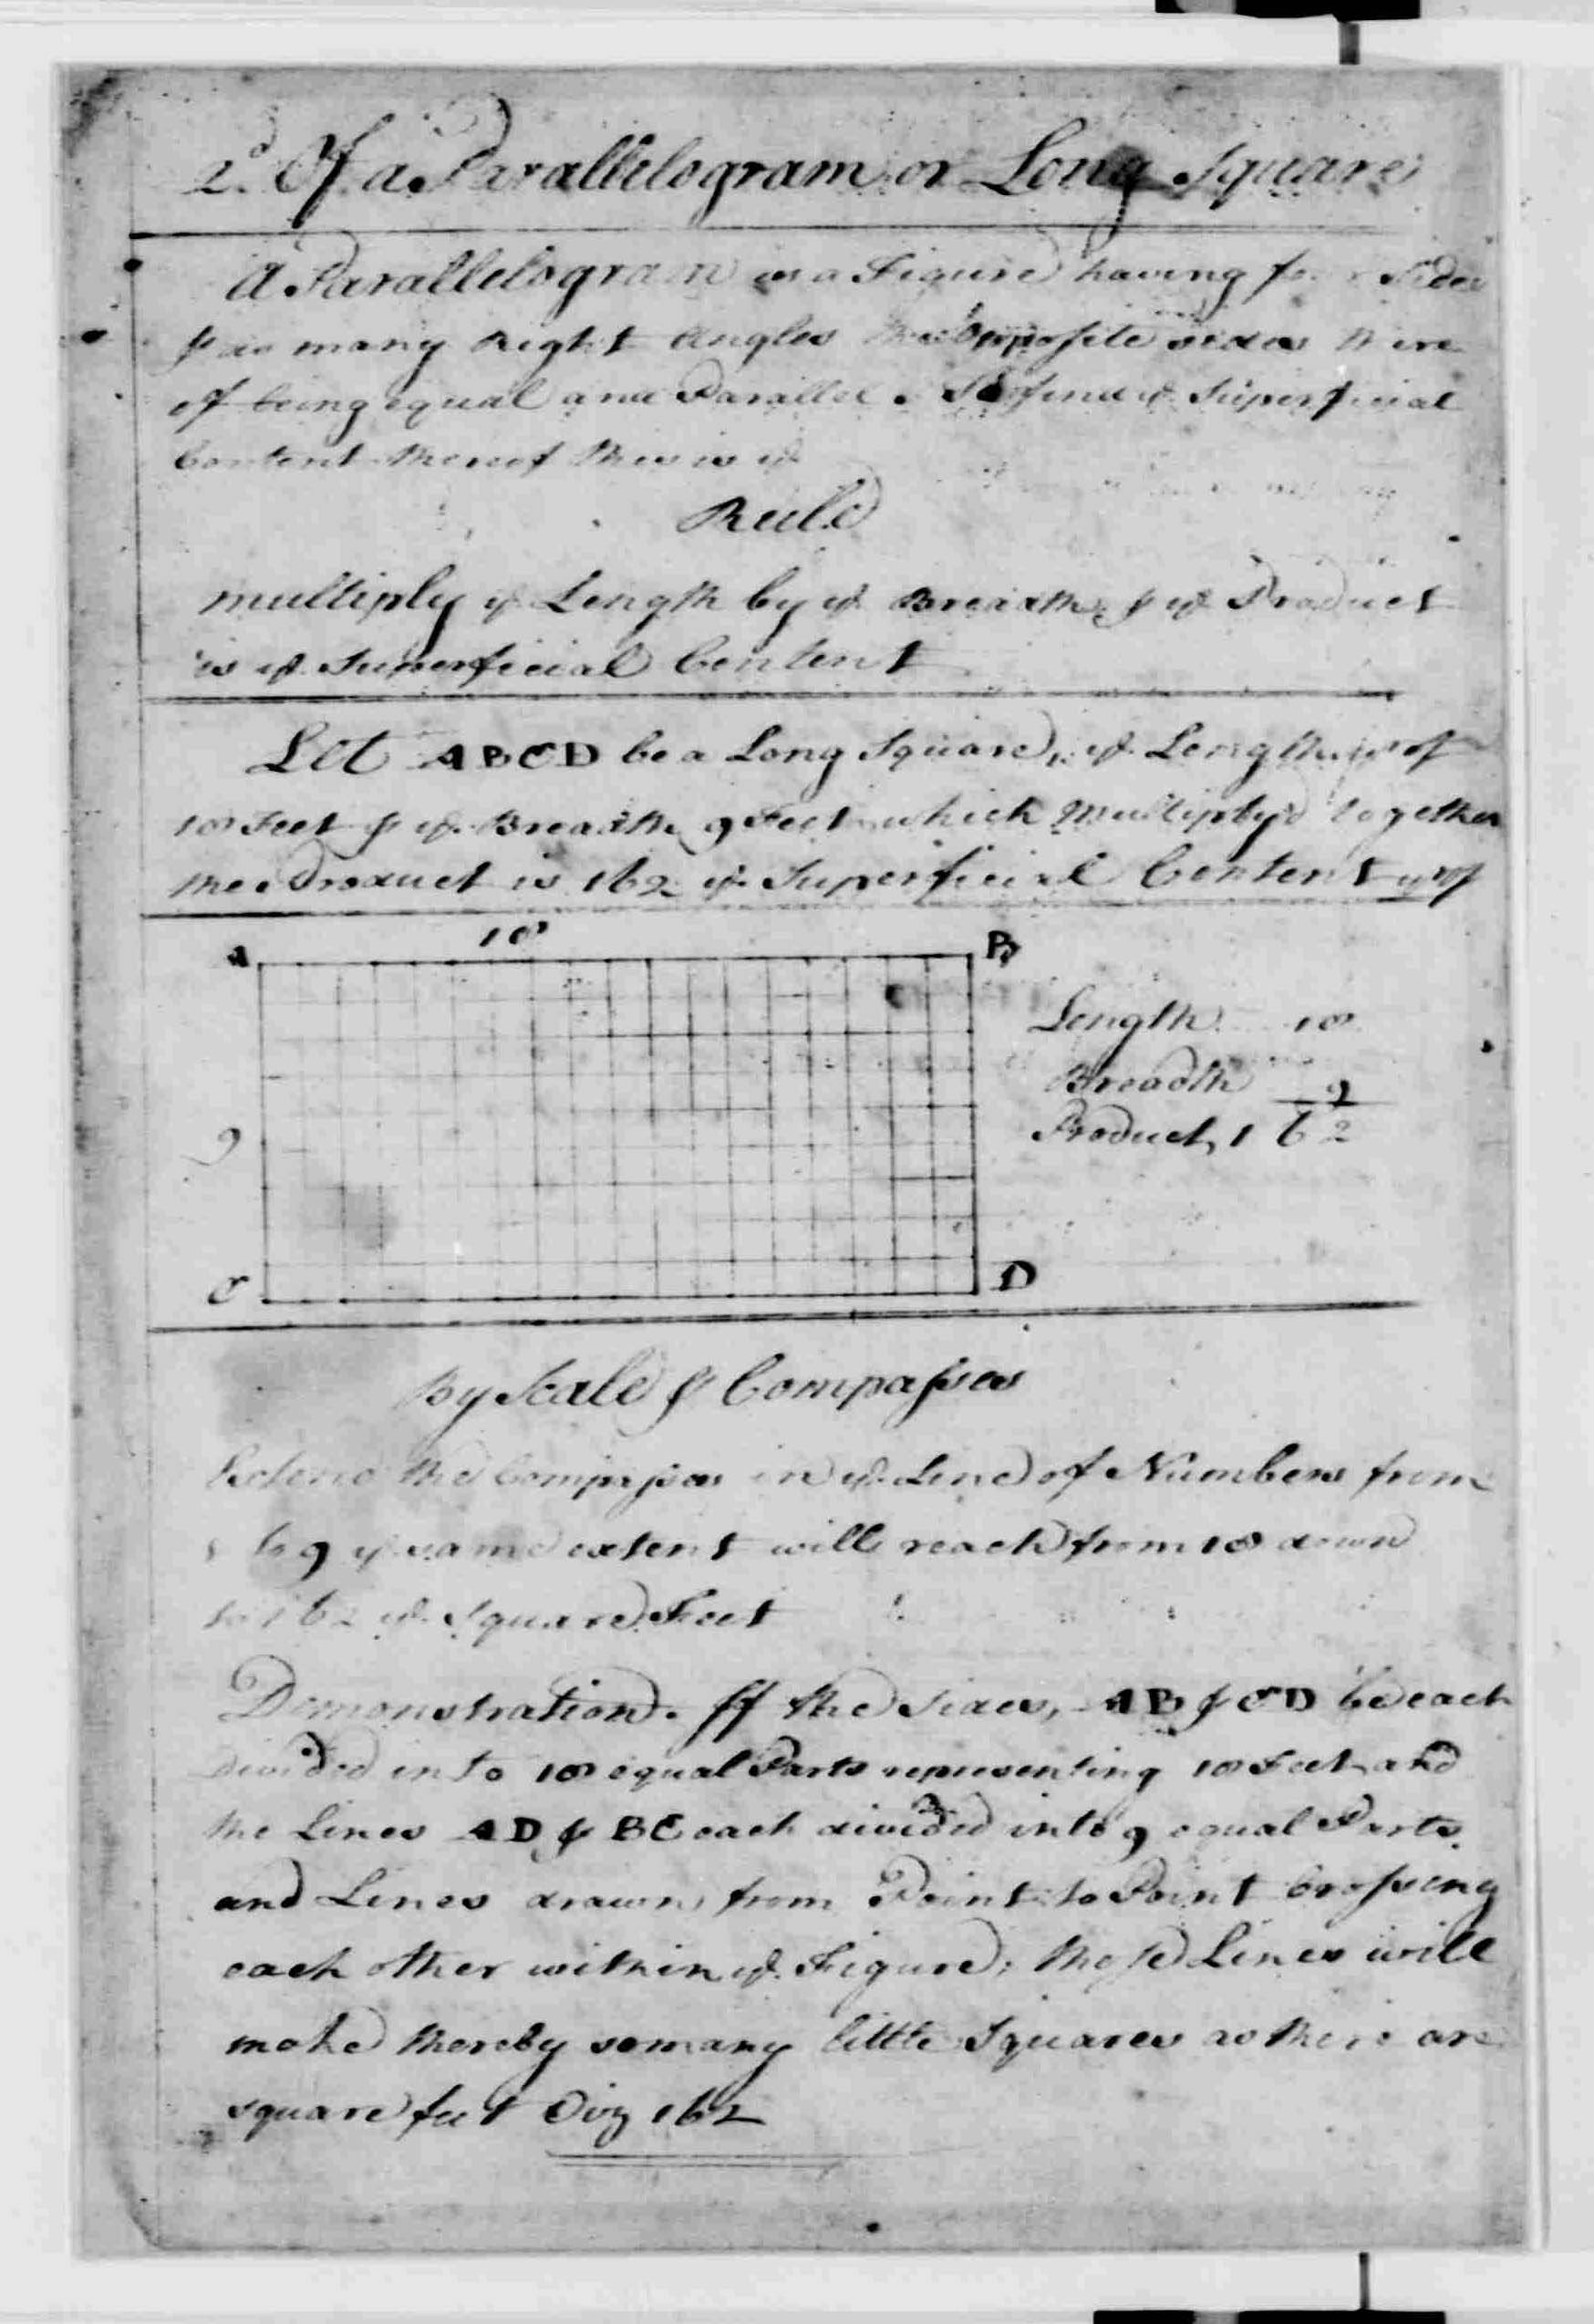 2.d Of a Parallelogram or Long Square
A Parallelogram is a Figure having four Sides
& as many Right Angles the Opposite sides there
of being equal and Parallel. To find ye Superficial
Content thereof this is ye
Rule
multiply ye Length by ye Breadth & ye Product
is ye Superficial Content
Let ABCD be a Long Square, ye Length wrof
18 Feet & ye Breadth 9 Feet which Multiply'd together
the Product is 162 ye Superficial Content wrof
18
A B
Length 18
Breadth 9
9
Product, 162
C D
By Scale & Compasses
Extend the Compasses in ye Line of Numbers from
1 to 9 ye same extent will reach from 18 down
to 162 ye Square Feet
Demonstration. If the sides, AB & CD be each
divided into 18 equal Parts representing 18 Feet and
the Lines AD & BC each divided into 9 equal Parts
and Lines drawn from Point to Point Crossing
each other within ye Figure; those Lines will
make thereby so many little Squares as there are
square feet Viz 162